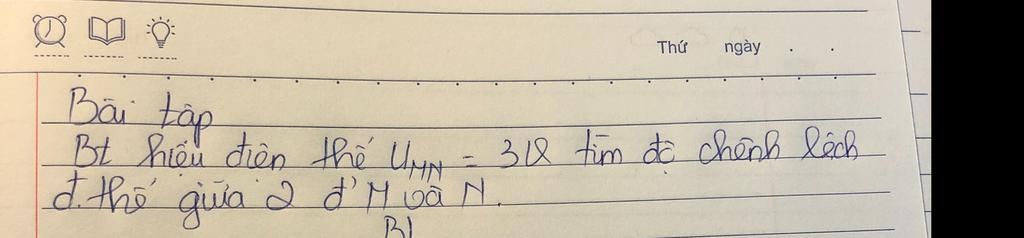 Thứ ngày . .
Bài tập
Bt hiệu điện thế UMN = 3V tìm độ chênh lệch
đ.thế giữa 2 đ' M và N.